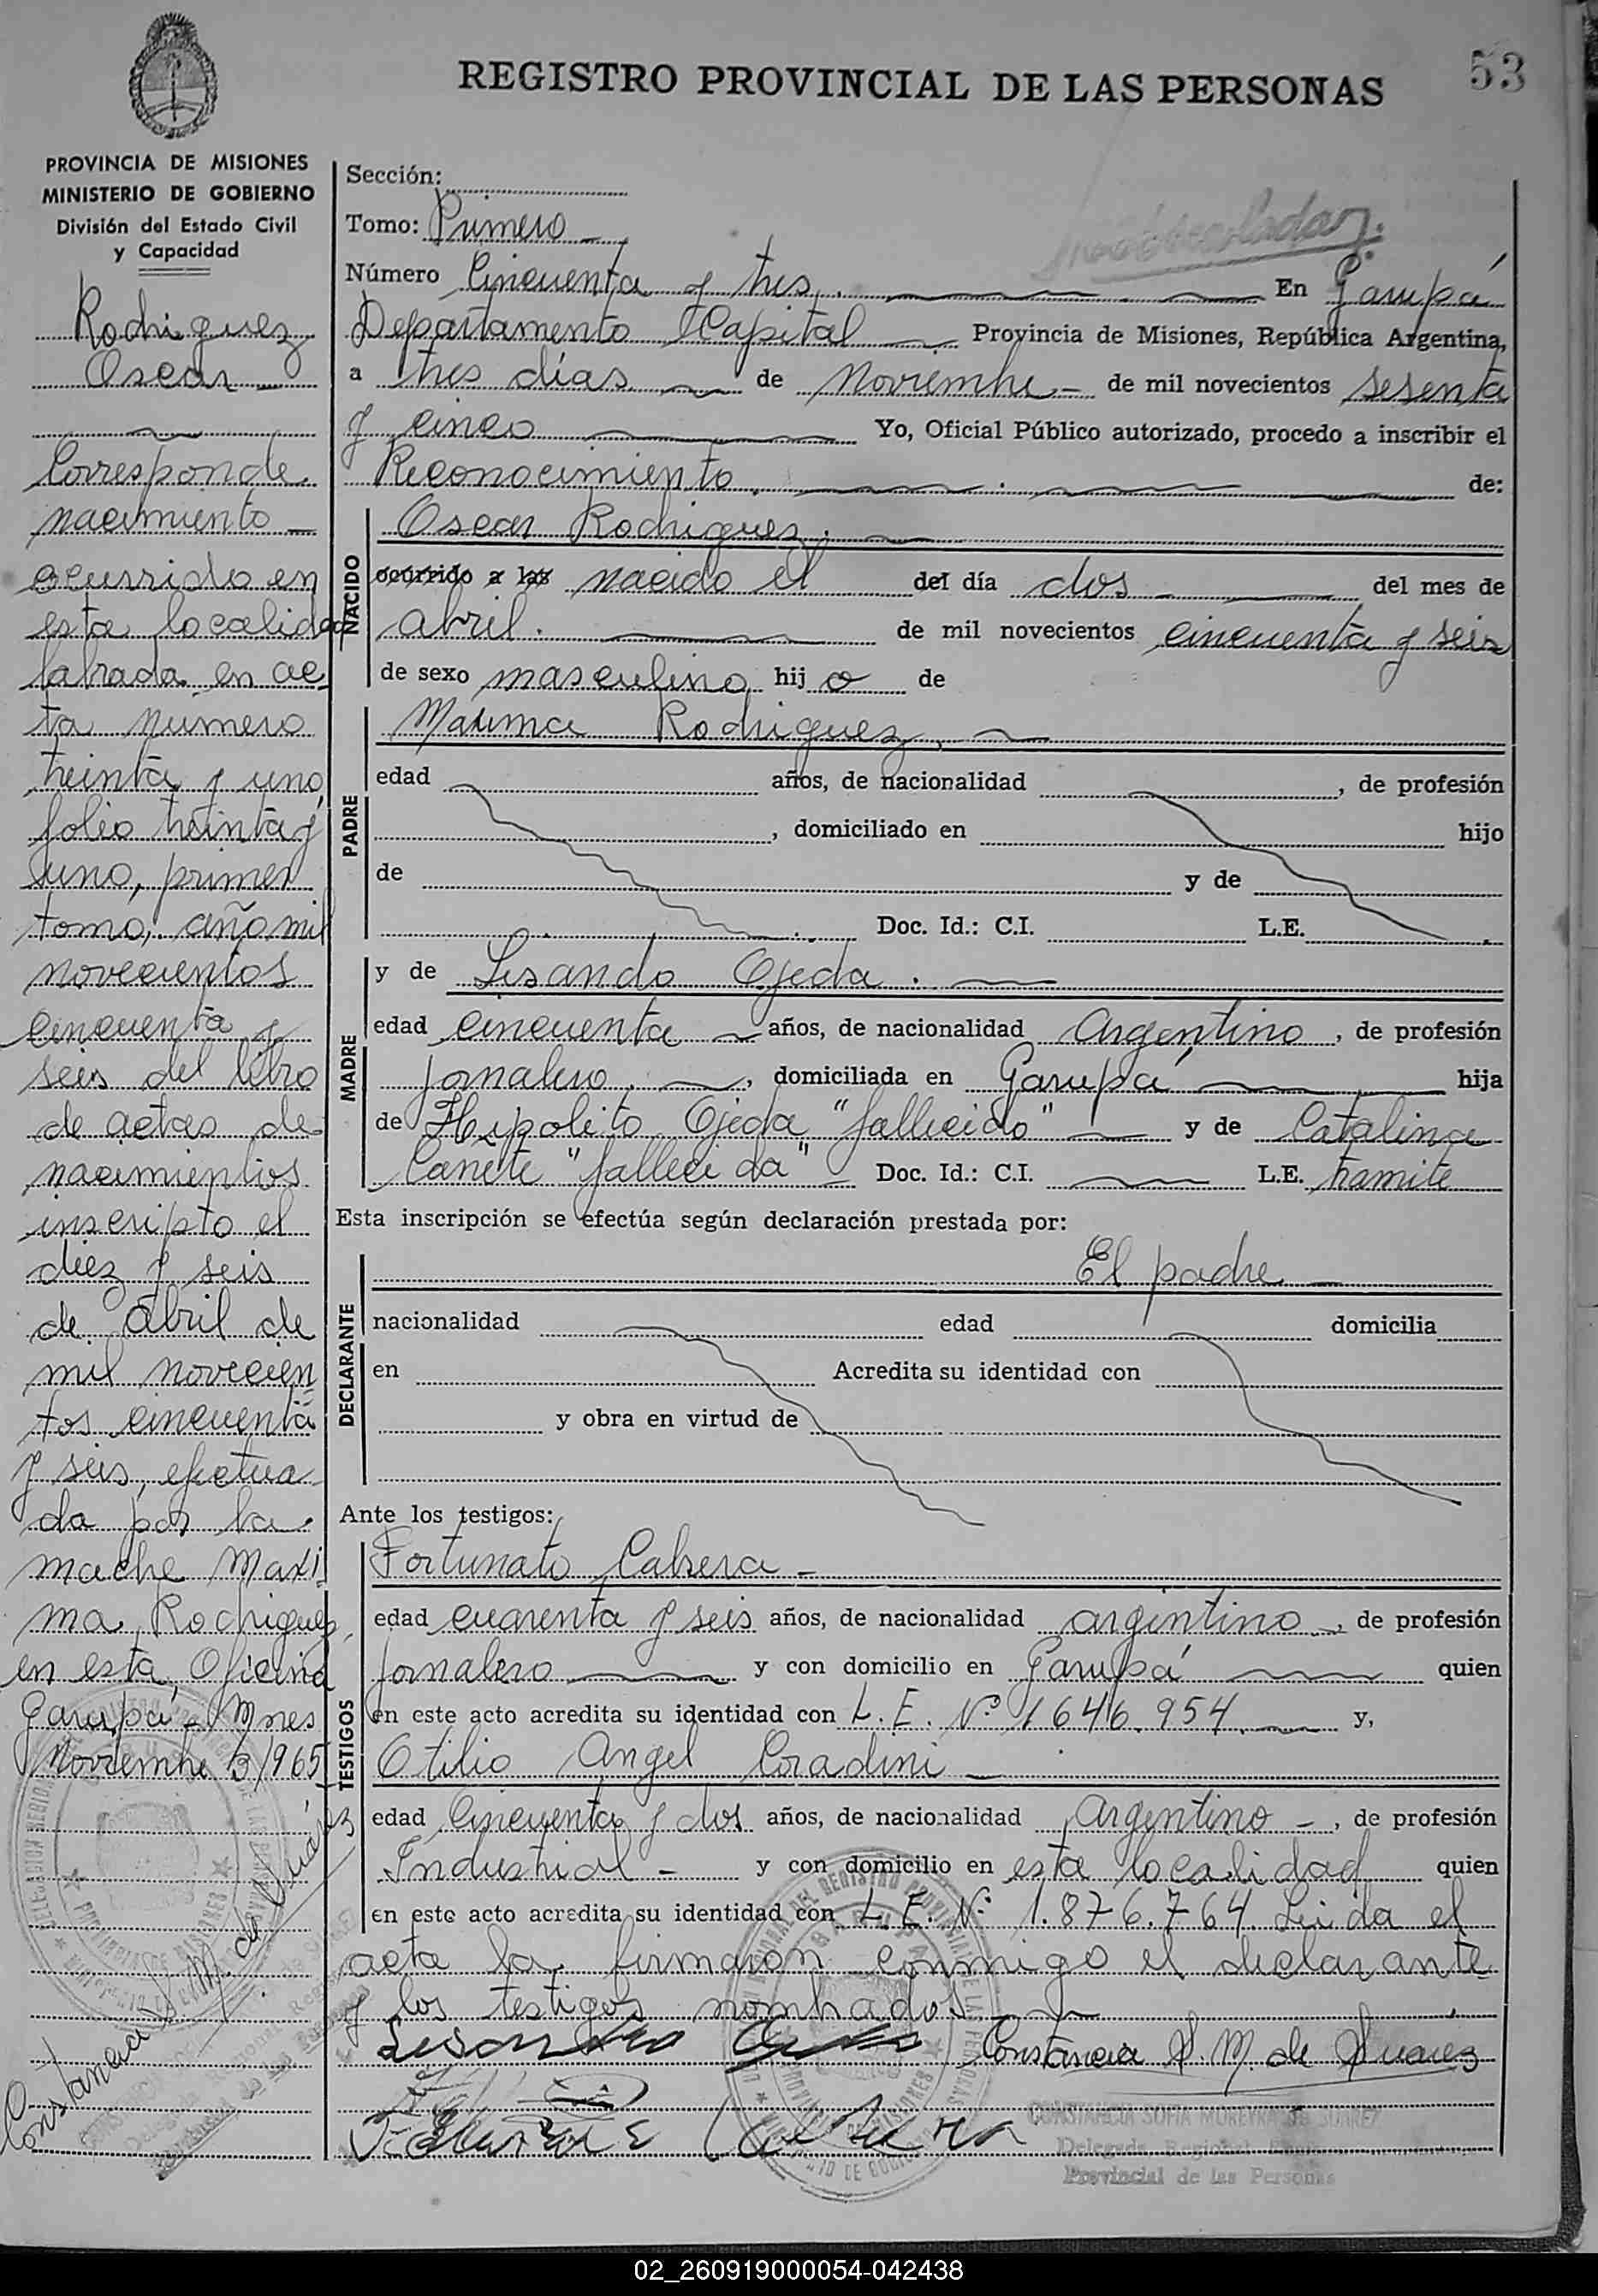 53
REGISTRO PROVINCIAL DE LAS PERSONAS
PROVINCIA DE MISIONES
MINISTERIO DE GOBIERNO
División del Estado Civil
y Capacidad
Rodriguez
Oscar
Corresponde
nacimiento
ocurrido en
esta localidad
labrada en ac
ta número
treinta y uno,
folio treinta y
uno, primer
tomo, año mil
novecientos
cincuenta y
seis del libro
de actas de
nacimientos
inscripto el
diez y seis
de abril de
mil novecien
tos cincuenta
y seis, efectua
da por la
madre Maxi
ma Rodriguez,
en esta Oficina
Garupá - Mnes
Noviembre 3/965
Constancia S. M. de Suárez
Sección:
Tomo: Primero
Número Cincuenta y tres. En Garupá
Departamento Capital Provincia de Misiones, República Argentina,
a tres días de Noviembre de mil novecientos sesenta
y cinco Yo, Oficial Público autorizado, procedo a inscribir el
Reconocimiento. de:
NACIDO
Oscar Rodriguez.
ocurrido a las nacido el del día dos del mes de
abril. de mil novecientos cincuenta y seis
de sexo masculino hij o de
PADRE
Maxima Rodriguez,
edad años, de nacionalidad , de profesión
, domiciliado en hijo
de y de
Doc. Id.: C.I. L.E.
MADRE
y de Lisando Ojeda.
edad cincuenta años, de nacionalidad Argentino, de profesión
jornalero, domiciliada en Garupá hija
de Hipolito Ojeda "fallecido" y de Catalina
Canete "fallecida" Doc. Id.: C.I. L.E. tramite
Esta inscripción se efectúa según declaración prestada por:
DECLARANTE
El padre
nacionalidad edad domicilia
en Acredita su identidad con
y obra en virtud de
Ante los testigos:
TESTIGOS
Fortunato Cabrera
edad cuarenta y seis años, de nacionalidad argintino, de profesión
jornalero y con domicilio en Garupá quien
en este acto acredita su identidad con L.E. Nº 1646.954 y,
Otilio Angel Coradini
edad Cincuenta y dos años, de nacionalidad Argentino, de profesión
Industrial y con domicilio en esta localidad quien
en este acto acredita su identidad con L.E. Nº 1.876.764. Leida el
acta la firmaron conmigo el declarante
y los testigos nombrados
Constancia S. M. de Suarez
CONSTANCIA SOFIA MOREYRA DE SUAREZ
Provincial de las Personas
02_260919000054-042438